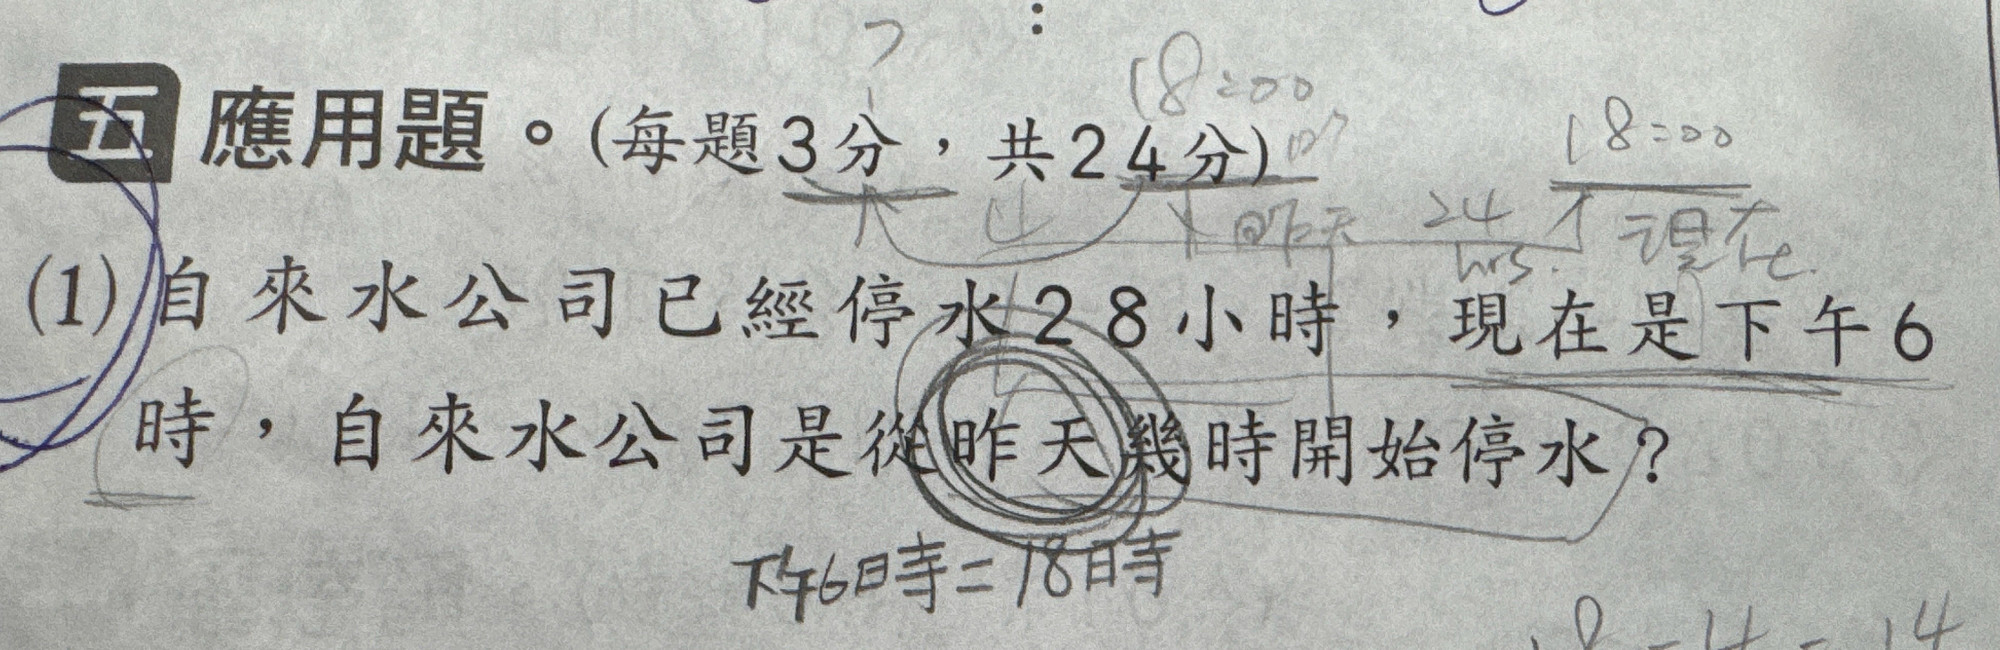 ?
18:00
18:00
五 應用題。(每題3分，共24分)
昨天 24 hrs. 現在
(1) 自來水公司已經停水28小時，現在是下午6
時，自來水公司是從昨天幾時開始停水？
下午6時=18時
18-4=14